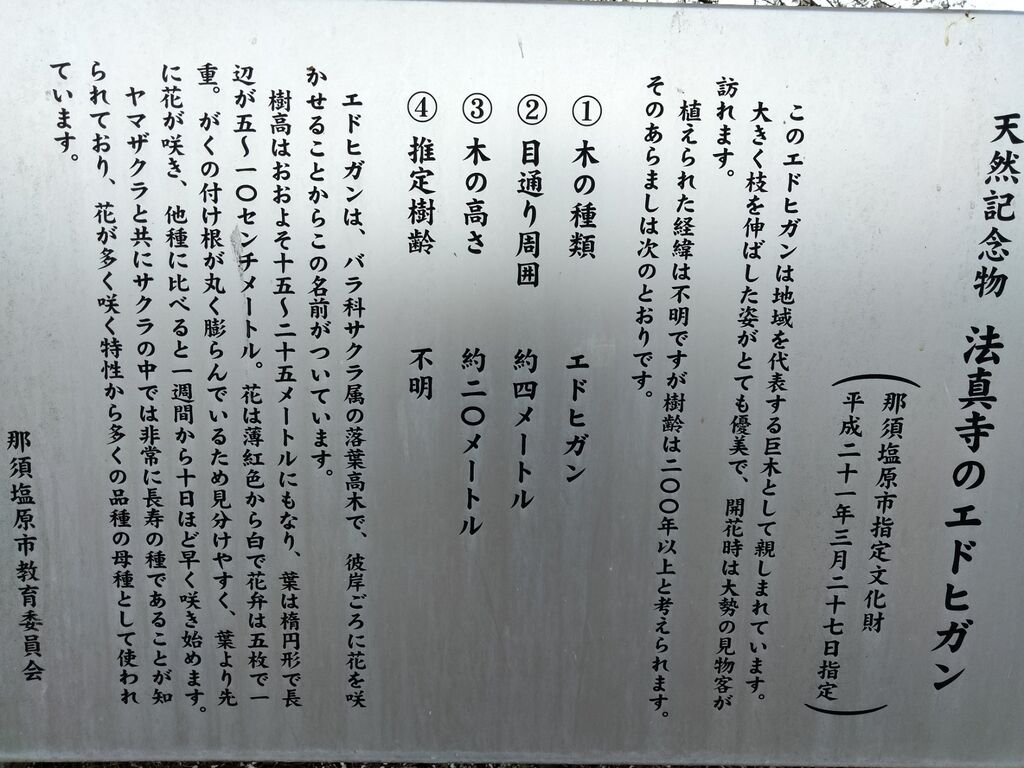 天然記念物 法真寺のエドヒガン
（那須塩原市指定文化財
平成二十一年三月二十七日指定）
このエドヒガンは地域を代表する巨木として親しまれています。
大きく枝を伸ばした姿がとても優美で、開花時は大勢の見物客が
訪れます。
植えられた経緯は不明ですが樹齢は二〇〇年以上と考えられます。
そのあらましは次のとおりです。
①木の種類 エドヒガン
②目通り周囲 約四メートル
③木の高さ 約二〇メートル
④推定樹齢 不明
エドヒガンは、バラ科サクラ属の落葉高木で、彼岸ごろに花を咲
かせることからこの名前がついています。
樹高はおおよそ十五～二十五メートルにもなり、葉は楕円形で長
辺が五～一〇センチメートル。花は薄紅色から白で花弁は五枚で一
重。がくの付け根が丸く膨らんでいるため見分けやすく、葉より先
に花が咲き、他種に比べると一週間から十日ほど早く咲き始めます。
ヤマザクラと共にサクラの中では非常に長寿の種であることが知
られており、花が多く咲く特性から多くの品種の母種として使われ
ています。
那須塩原市教育委員会